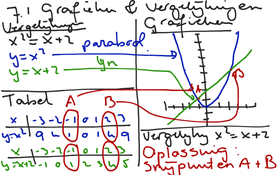 7.1 Grafieken & vergelijkingen
Vergelijking
Grafieken
x² = x+2
y = x² parabool
y = x+2 lijn
A
B
Tabel A B
x -3 -2 -1 0 1 2 3
y=x² 9 4 1 0 1 4 9
x -3 -2 -1 0 1 2 3
y=x+2 -1 0 1 2 3 4 5
Vergelijk x² = x+2
Oplossing:
Snijpunten A + B